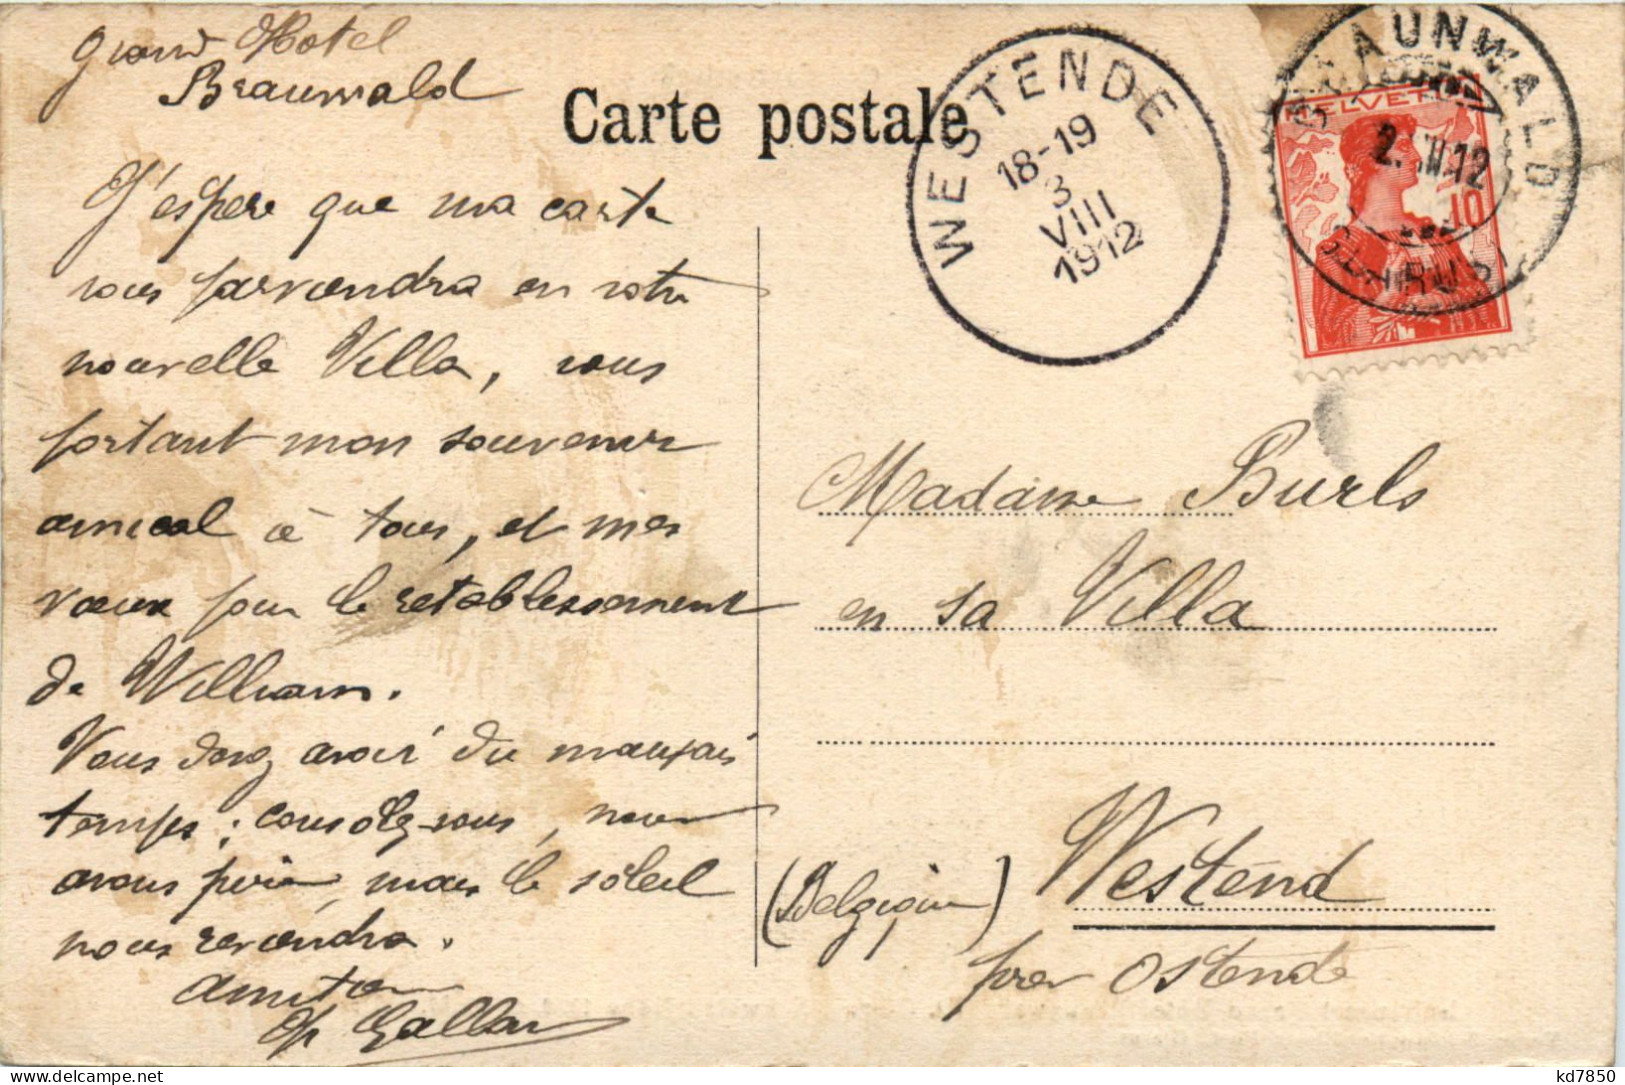 Grand Hotel
Braunwald
Carte postale
WESTENDE
18-19
3
VIII
1912
BRAUNWALD
HELVETIA
2. 12
10
J'espère que ma carte
vous parviendra en votre
nouvelle Villa, vous
portant mon souvenir
amical à tous, et mes
vœux pour le rétablissement
de William.
Vous devez avoir du mauvais
temps; consolez-vous, nous
avons pire, mais le soleil
nous reviendra.
Madame Burls
en sa Villa
Westend
(Belgique)
par Ostende
kd7850